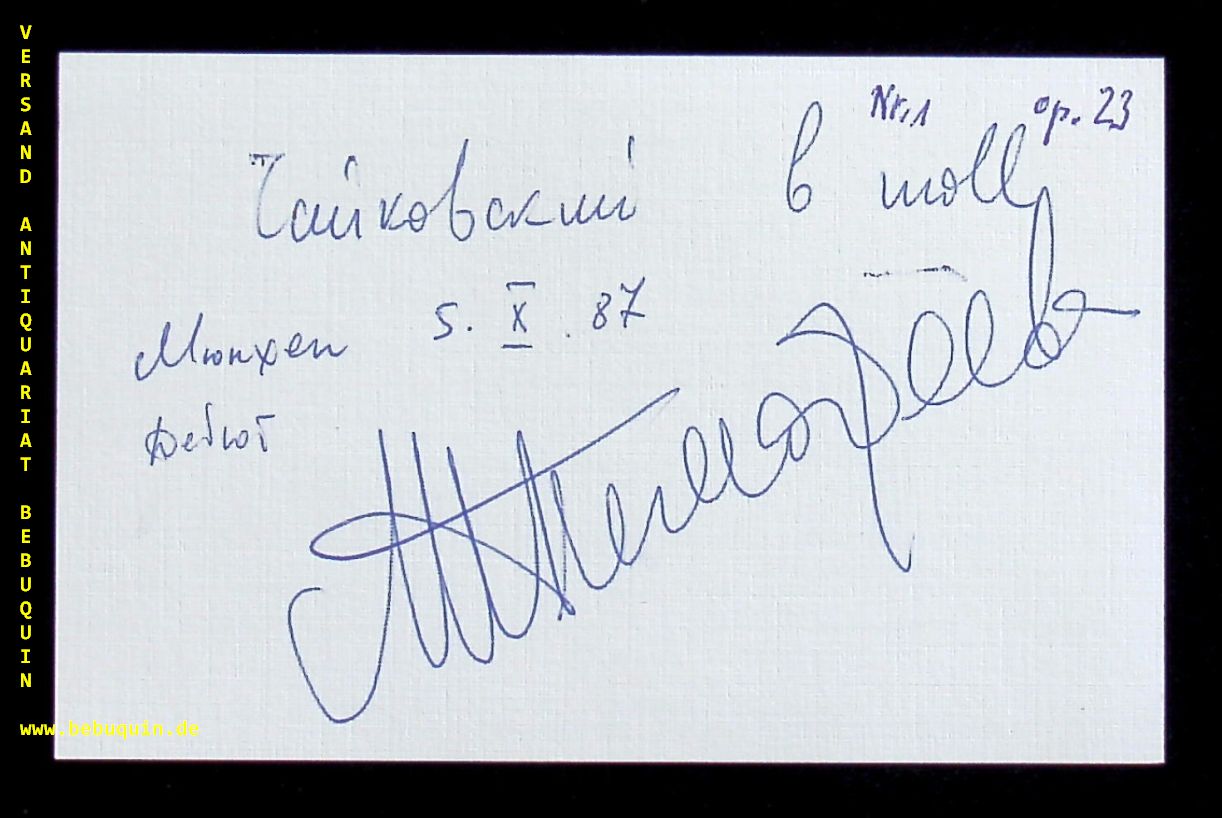 VERSAND ANTIQUARIAT BEBUQUIN
Nr.1 op. 23
Чайковский b moll
Мюнхен 5. X. 87
Дебют
www.bebuquin.de